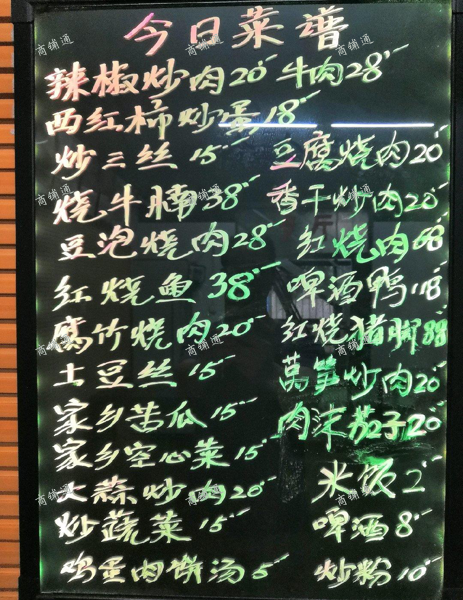 今日菜谱
辣椒炒肉20 牛肉28
西红柿炒蛋18
炒三丝15 豆腐烧肉20
烧牛腩38 香干炒肉20
豆泡烧肉28 红烧肉68
红烧鱼38 啤酒鸭118
腐竹烧肉20 红烧猪脚88
土豆丝15 莴笋炒肉20
家乡苦瓜15 肉沫茄子20
家乡空心菜15
大蒜炒肉20 米饭2
炒蔬菜15 啤酒8
鸡蛋肉饼汤5 炒粉10
商铺通